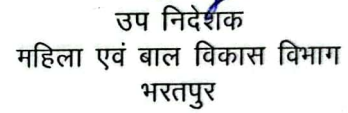 उप निदेशक
महिला एवं बाल विकास विभाग
भरतपुर